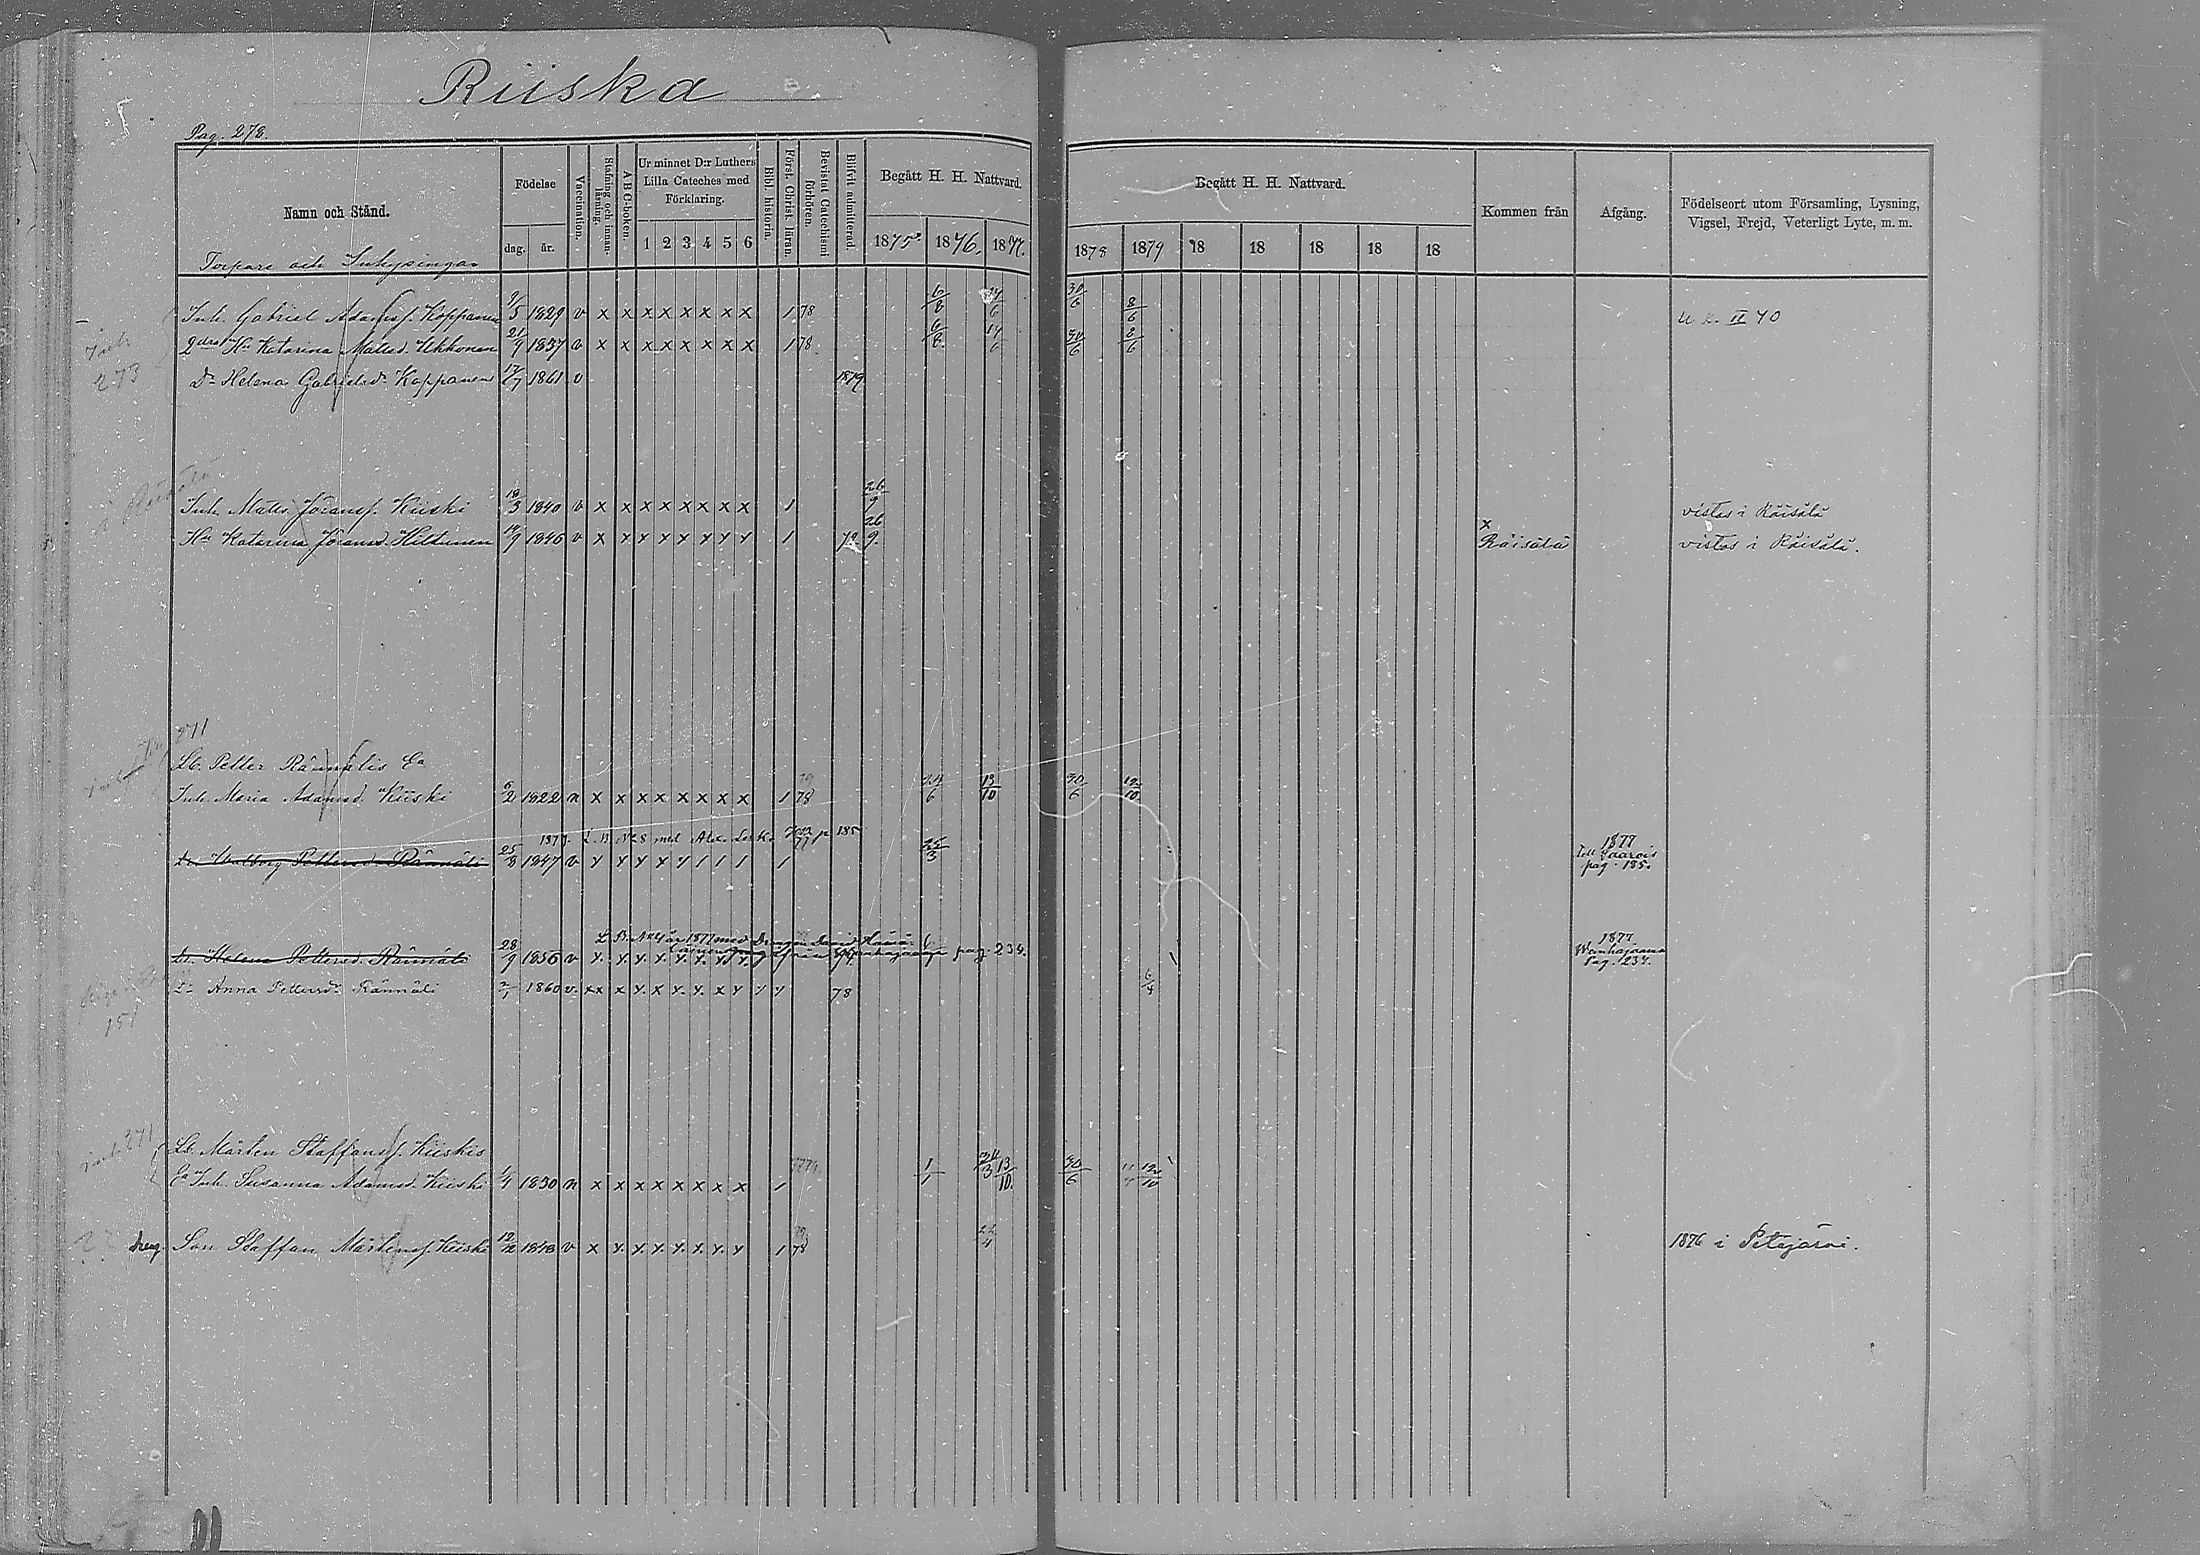 Riiska
Pag. 278.
Namn och Stånd.
Födelse
dag. år.
Vaccination.
Stafning och innanläsning.
A B C-boken.
Ur minnet D:r Luthers Lilla Cateches med Förklaring.
1 2 3 4 5 6
Bibl. historia.
Först. Christ. läran.
Bevistat Catechismi förhören.
Blifvit admitterad.
Begått H. H. Nattvard.
1875. 1876. 1877.
Begått H. H. Nattvard.
1878 1879 18 18 18 18 18
Kommen från
Afgång.
Födelseort utom Församling, Lysning, Vigsel, Frejd, Veterligt Lyte, m. m.
Torpare och Inhysingar
Inh. Gabriel Adamsf. Koppanen 9/5 1829 v x x x x x x x x 1 78 6/8 17/6 30/6 8/6 II 40
2dra Hu Katarina Matsd. Ukkonen 21/9 1837 v x x x x x x x x 1 78 6/8 17/6 30/6 8/6
Inh 273
Dr Helena Gabrielsdr Koppanen 17/7 1861 v 1879
Inh. Matts Göransf. Kiiski 18/3 1840 v x x x x x x x x 1 26/9 vistas i Räisälä
Hu Katarina Göransd. Hiltunen 14/9 1846 v x x x x x x x x 1 72 26/9. x Räisälä vistas i Räisälä.
271
Lb. Petter Rännälis Ea
Inh. Maria Adamsd. Kiiski 6/2 1822 n x x x x x x x x 1 78 24/6 13/10 30/6 12/10
1877. L. B. No 8 med Alex. p 185
Dr Walborg Pettersd. Rännäli 25/8 1847 v x x x x x 1 1 1 1 25/3 1877 Till Saarois pag. 185.
L. B. No 4 år 1877 med Drengen David pag. 234.
Dr. Helena Pettersd. Rännäli 28/9 1856 v x. x. x. x. x. x. x. 1877 Wanhajaama Pag. 234.
Dr Anna Pettersdr Rännäli 2/1 1860 v. x x x x. x x. x. x x 78 6/4
151
Inh. 271
Lb. Mårten Staffansf. Kiiskis
Ea Inh. Susanna Adamsd. Kiiski 1/4 1830 n x x x x x x x x 1 1/1 24/3 13/10. 30/6 12/10
dreng. Son Staffan Mårtensf. Kiiski 12/12 1848 v x x. x. x. x. x. x. x 1 78 22/4 1876 i Petäjärvi.